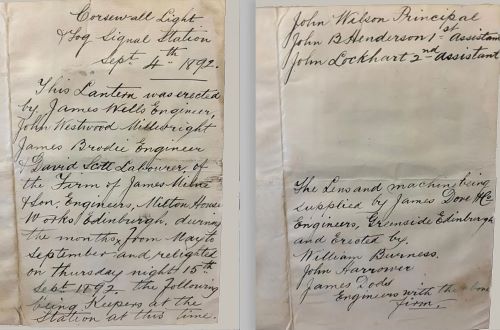 Corsewall Light
& Fog Signal Station
Sept. 4th 1892.
This Lantern was erected
by James Wells Engineer,
John Westwood Millwright
James Brodie Engineer
& David Scott Labourer, of
the Firm of James Milne
& Son, Engineers, Milton House
Works, Edinburgh, during
the months, from May to
September and relighted
on Thursday night 15th
Sept 1892. the following
being Keepers at the
Station at this time.
John Wilson Principal
John B Henderson 1st assistant
John Lockhart 2nd assistant
The Lens and machine being
supplied by James Dove & Co
Engineers, Greenside Edinburgh
and Erected by.
William Burness.
John Harrower
James Dods
Engineers with the above
firm,